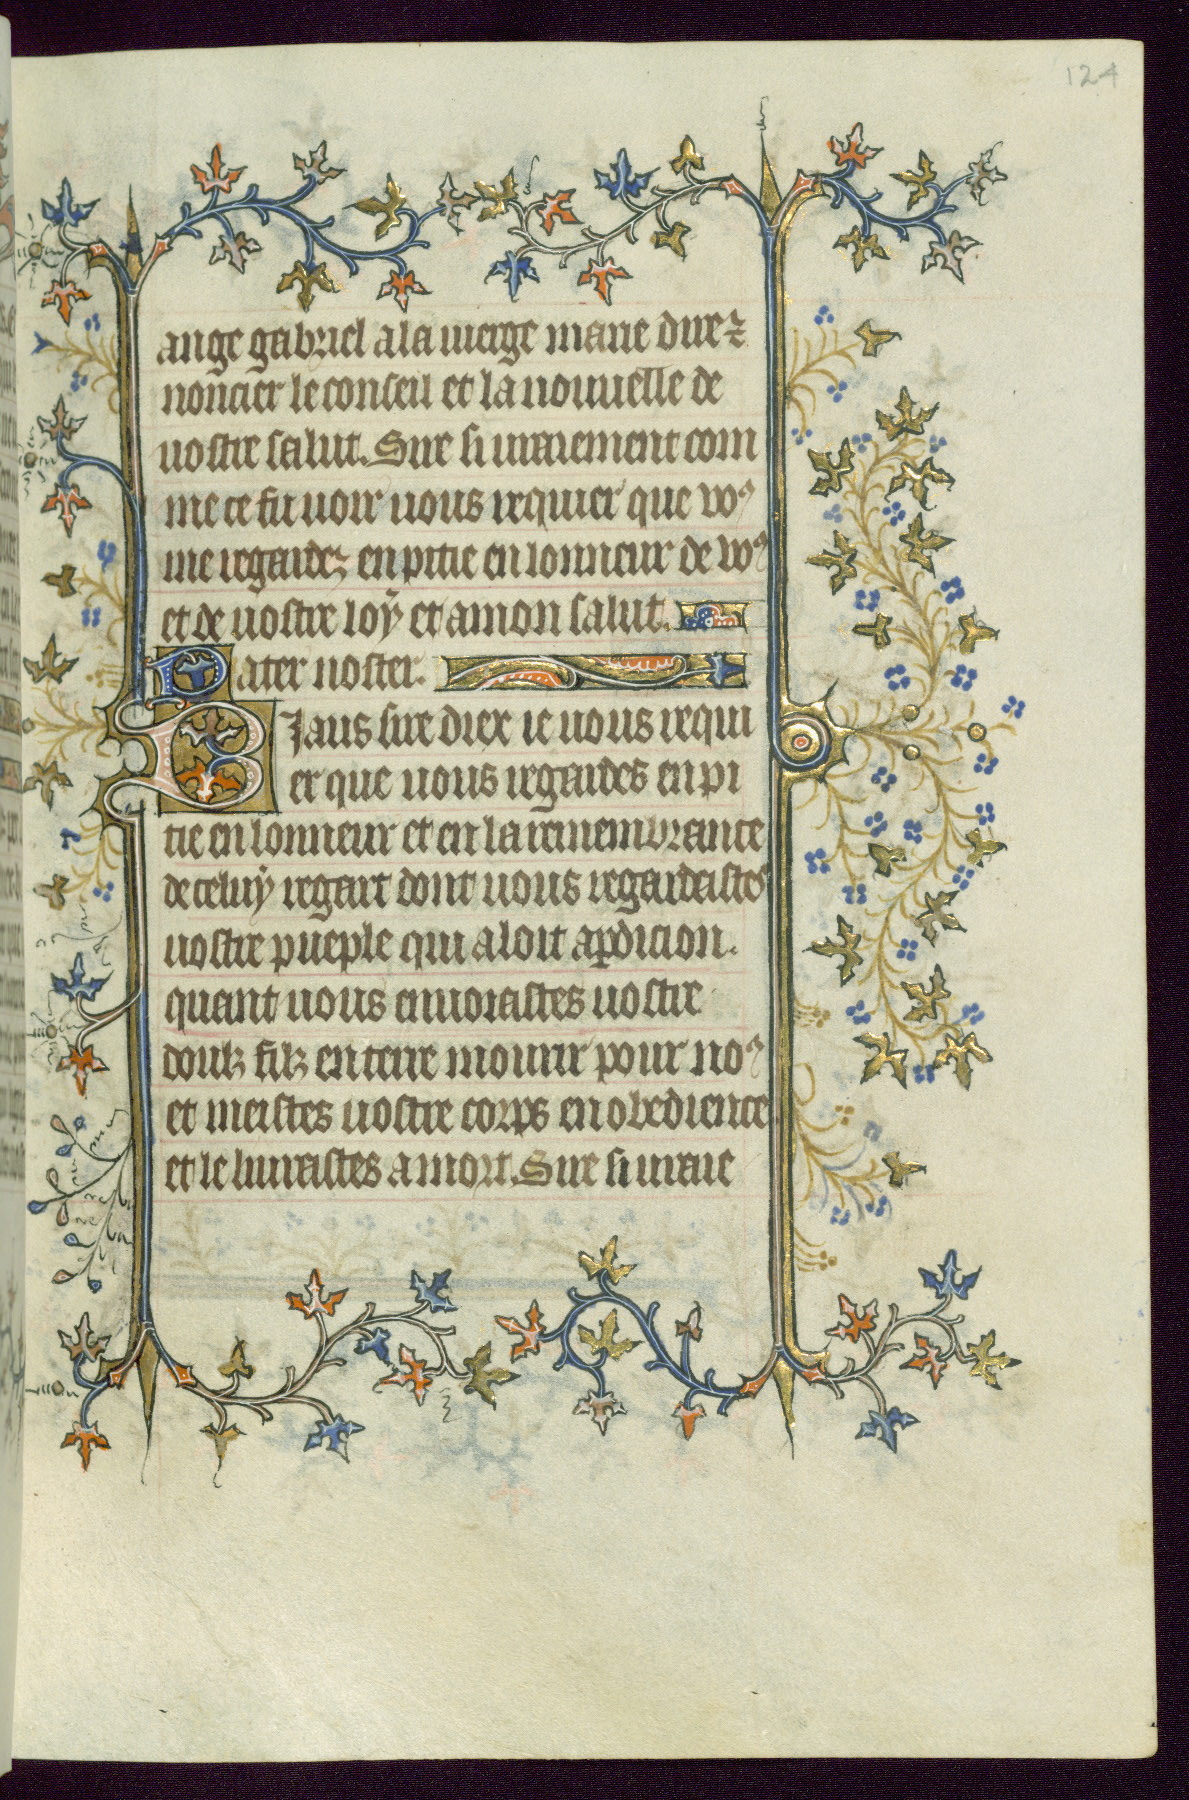 124
ange gabriel a la uierge marie dire ⁊
noncier le conseil et la nouuelle de
uostre salut. Sire si uraiement com
me ce fu uoir uous requier que vo⁹
me regardez en pitie en lonneur de vo⁹
et de uostre loÿ et a mon salut.
Pater noster.
Biaus sire diex ie uous requi
er que uous regardes en pi
tie en lonneur et en la remembrance
de celuÿ regart dont uous regardastes
uostre pueple qui aloit a ꝑdicion.
quant uous enuoiastes uostre
doulz filz en terre mourir pour no⁹
et meistes uostre corps en obedience
et le liurastes a mort. Sire si uraie